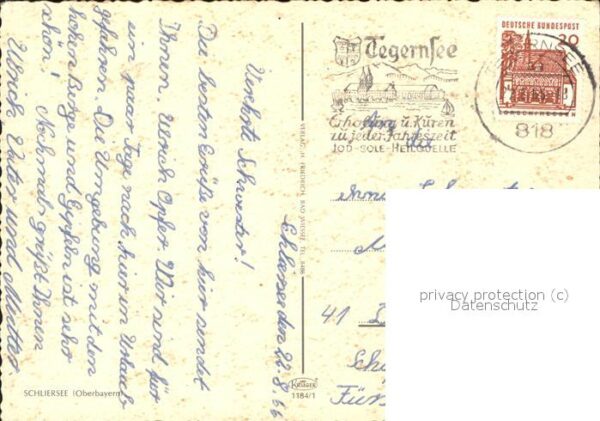 Schliersee den 22.8.66
Verehrte Schwester!
Die besten Grüße von hier sendet
Ihnen Ulrich Opfer. Wir sind für
ein paar Tage nach hier in Urlaub
gefahren. Die Umgebung mit den
hohen Bergen und Gipfeln ist sehr
schön! Nochmals grüßt Ihnen
Ulrich Vater und Mutter
SCHLIERSEE (Oberbayern)
VERLAG H. FRIEDRICH, BAD WIESSEE, TEL. 8486
KRÜGER
1184/1
Tegernsee
Erholung u. Kuren
zu jeder Jahreszeit
JOD-SOLE-HEILQUELLE
DEUTSCHE BUNDESPOST
20
TORSCHPRESSEN
818
An die
41
privacy protection (c)
Datenschutz